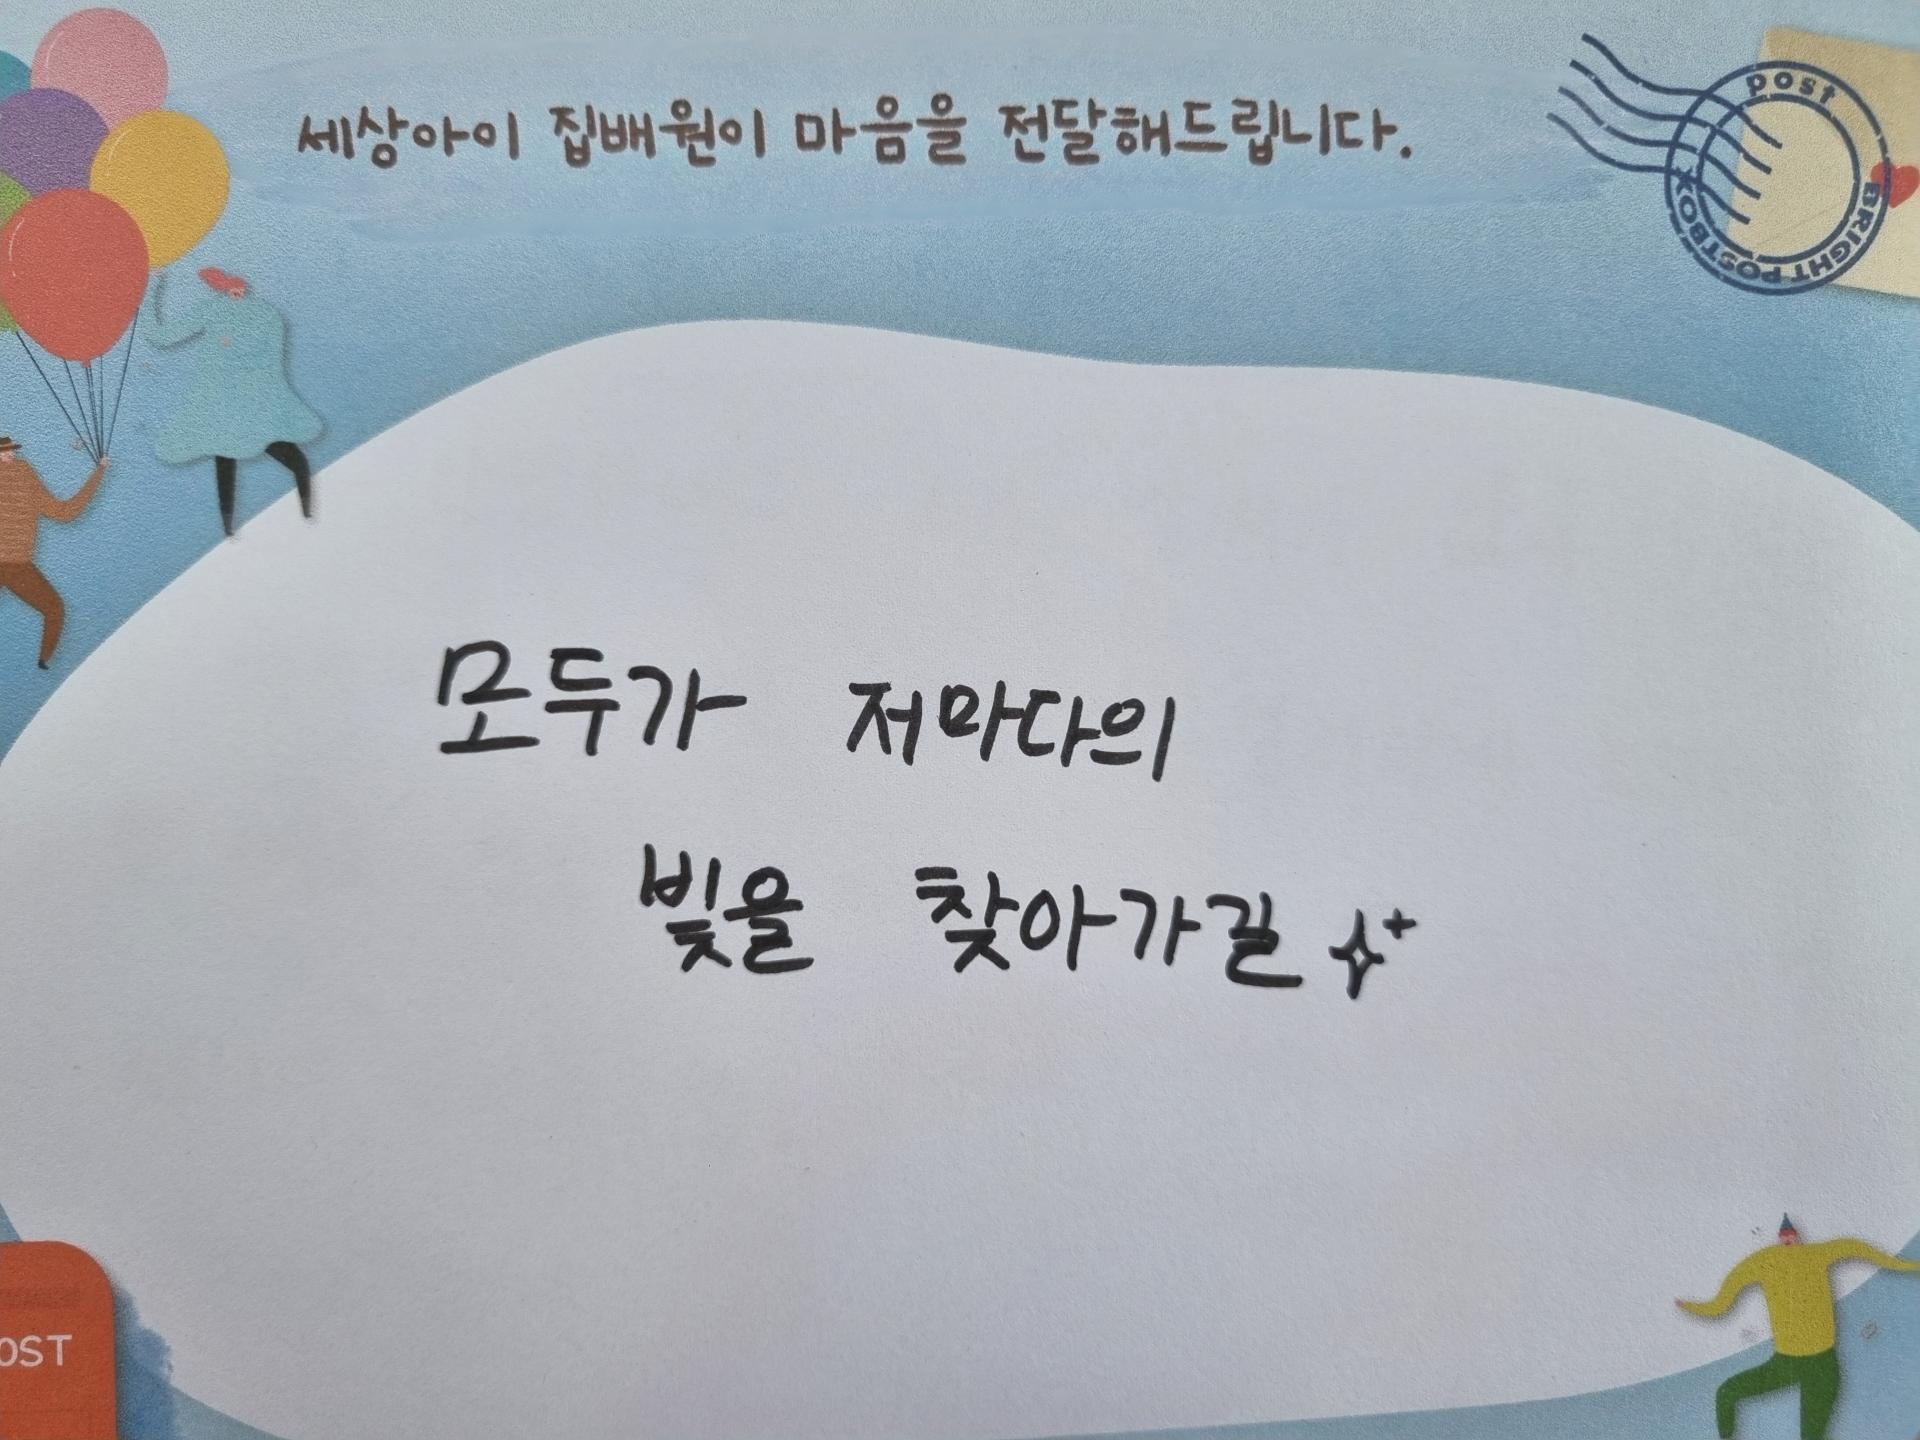 세상아이 집배원이 마음을 전달해드립니다.
post
BRIGHT POSTBOX
모두가 저마다의
빛을 찾아가길
OST